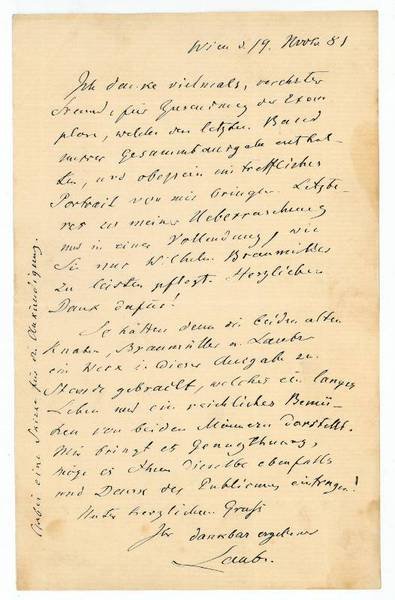 Wien d. 19. Novbr. 81
Ich danke vielmals, verehrter
Freund, für Zusendung der Exem
plare, welche den letzten Band
unsrer Gesammtausgabe enthal-
ten, und obgleich ein treffliches
Portrait von mir bringen. Letzte-
res zu meiner Ueberraschung
und in einer Vollendung, wie
Sie nur Wilhelm Braumüller
zu leisten pflegt. Herzlichen
Dank dafür!
So hätten denn die beiden alten
Knaben, Braumüller u. Laube
ein Werk in dieser Ausgabe zu
Stande gebracht, welches ein langes
Leben und ein reichliches Bemü-
hen von beiden Männern darstellt.
Mir bringt es Genugthuung,
möge es Ihnen dieselbe ebenfalls
und Dank des Publicums eintragen!
Unter herzlichem Gruß
Ihr dankbar ergebener
Laube.
Anbei eine Skizze für die Ankündigung.